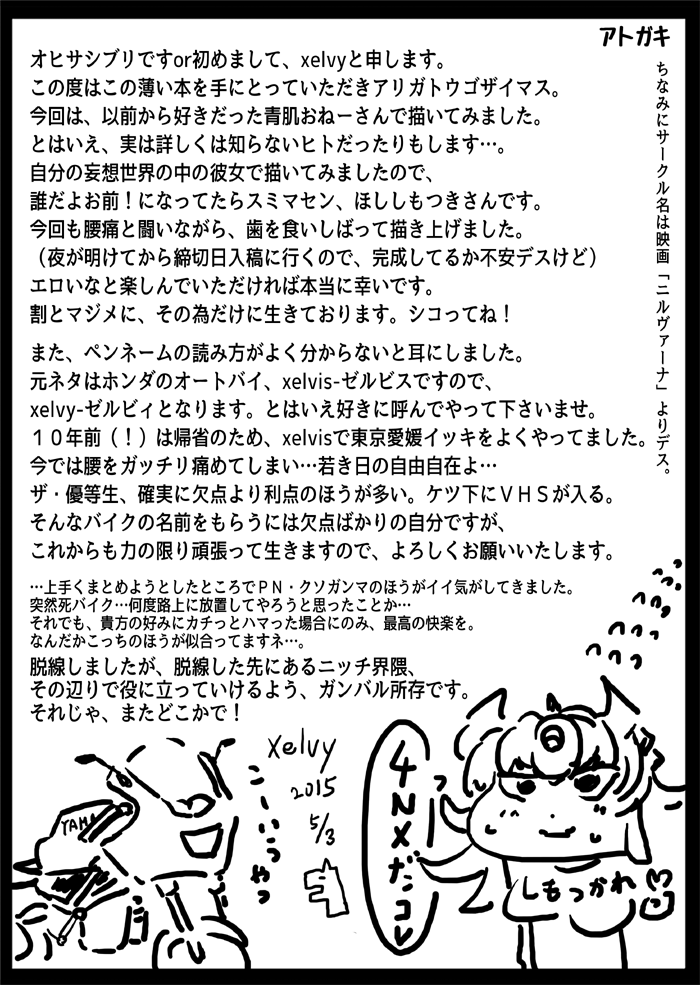 アトガキ
ちなみにサークル名は映画「ニルヴァーナ」よりデス。
オヒサシブリですor初めまして、xelvyと申します。
この度はこの薄い本を手にとっていただきアリガトウゴザイマス。
今回は、以前から好きだった青肌おねーさんで描いてみました。
とはいえ、実は詳しくは知らないヒトだったりもします…。
自分の妄想世界の中の彼女で描いてみましたので、
誰だよお前！になってたらスミマセン、ほししもつきさんです。
今回も腰痛と闘いながら、歯を食いしばって描き上げました。
（夜が明けてから締切日入稿に行くので、完成してるか不安デスけど）
エロいなと楽しんでいただければ本当に幸いです。
割とマジメに、その為だけに生きております。シコってね！
また、ペンネームの読み方がよく分からないと耳にしました。
元ネタはホンダのオートバイ、xelvis-ゼルビスですので、
xelvy-ゼルビィとなります。とはいえ好きに呼んでやって下さいませ。
１０年前（！）は帰省のため、xelvisで東京愛媛イッキをよくやってました。
今では腰をガッチリ痛めてしまい…若き日の自由自在よ…
ザ・優等生、確実に欠点より利点のほうが多い。ケツ下にＶＨＳが入る。
そんなバイクの名前をもらうには欠点ばかりの自分ですが、
これからも力の限り頑張って生きますので、よろしくお願いいたします。
…上手くまとめようとしたところでＰＮ・クソガンマのほうがイイ気がしてきました。
突然死バイク…何度路上に放置してやろうと思ったことか…
それでも、貴方の好みにカチっとハマった場合にのみ、最高の快楽を。
なんだかこっちのほうが似合ってますネ…。
脱線しましたが、脱線した先にあるニッチ界隈、
その辺りで役に立っていけるよう、ガンバル所存です。
それじゃ、またどこかで！
xelvy
2015
5/3
こーいうやつ
YAMA
4NXだコレ
っ
しもつかれ